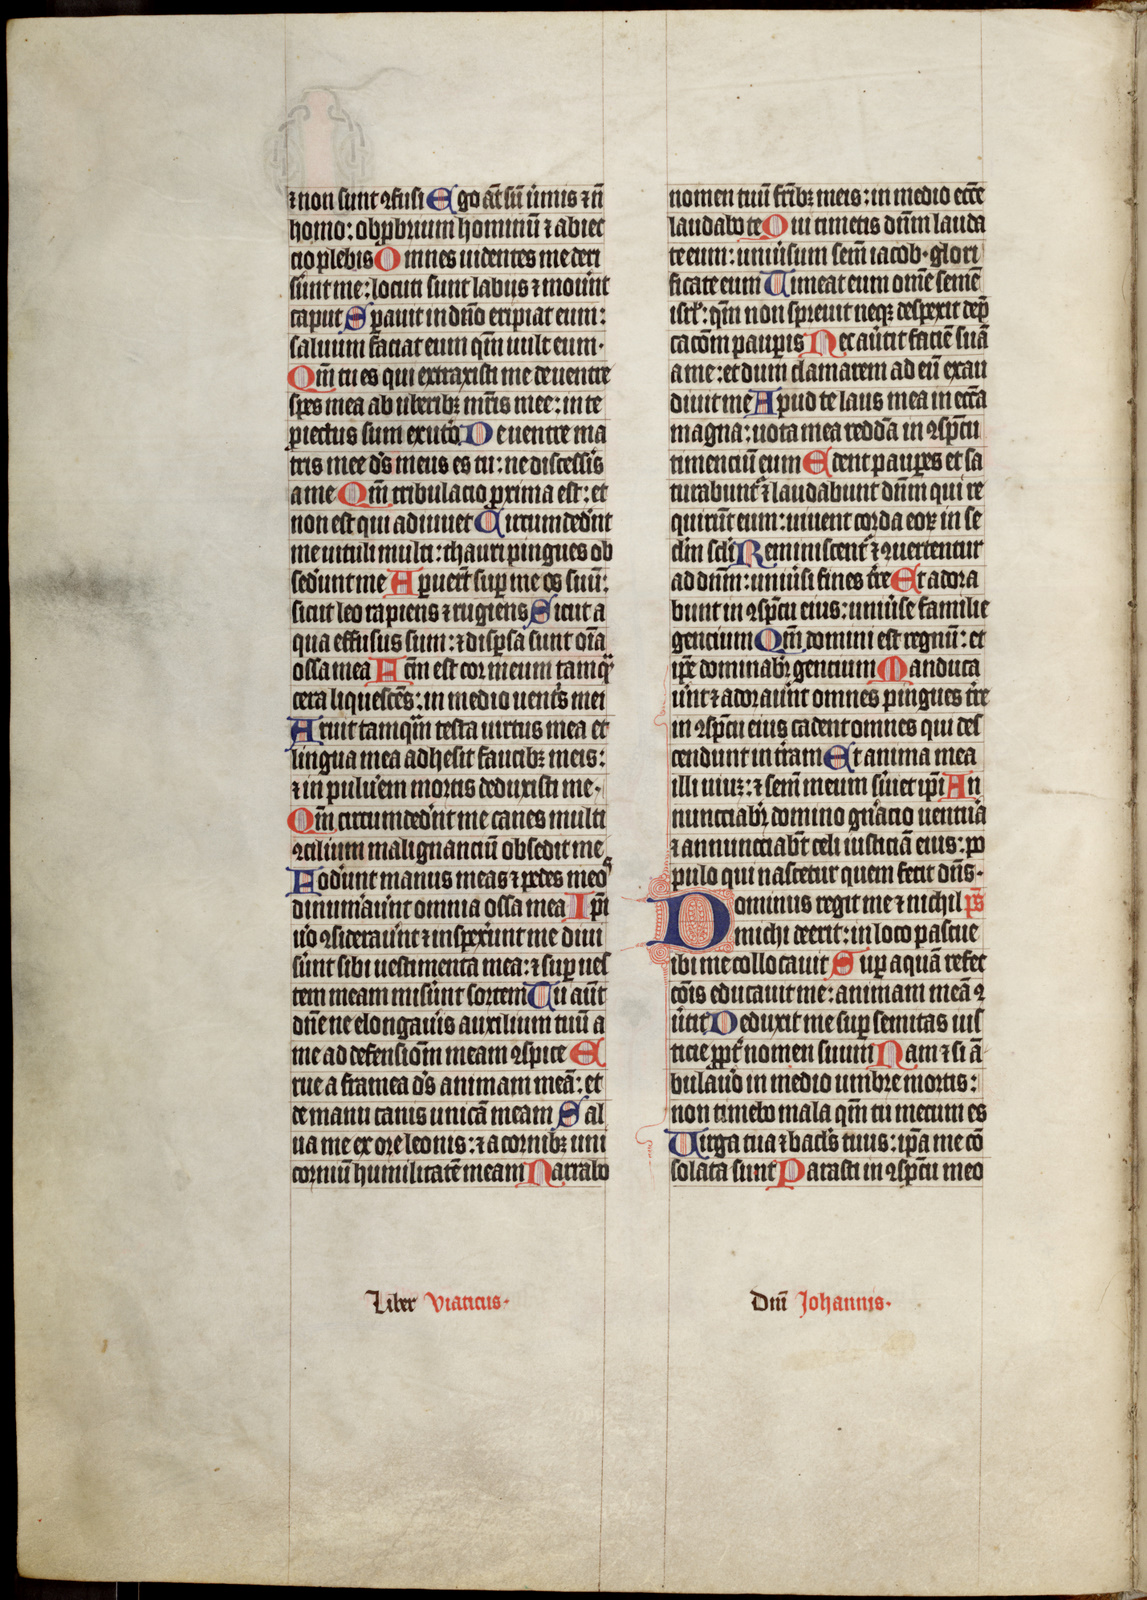 ⁊ non sunt ꝯfusi Ego aūt sū ůmis ⁊ nō
homo: obꝓbrium hominū ⁊ abiec
cio plebis Omnes uidentes me deri
sůnt me: locuti sunt labijs ⁊ moůnt
caput Sperauit in dño eripiat eum:
saluum faciat eum qm̄ uult eum.
Qm̄ tu es qui extraxisti me de uentre
spes mea ab uberibꝫ mr̄is mee: in te
ꝓiectus sum ex uťo De uentre ma
tris mee ds̄ meus es tu: ne discessis
a me Qm̄ tribulacio ꝓxima est: et
non est qui adiuuet Circumdeďnt
me uituli multi: thauri pingues ob
seďunt me Aꝑuert̄ suꝑ me os suū:
sicut leo rapiens ⁊ rugiens Sicut a
qua effusus sum: ⁊ disꝑsa sunt oīa
ossa mea Fcm̄ est cor meum tamqᷓ
cera liquescēs: in medio uentⁱs mei
Aruit tamqᷓm testa uirtus mea et
lingua mea adhesit faucibꝫ meis:
⁊ in puluěem mortis deduxisti me.
Qm̄ circumdeďnt me canes multi
ꝯcilium malignanciū obsedit me
Foďunt manus meas ⁊ pedes meoˢ
dinumaůnt omnia ossa mea Ip̄i
ůo ꝯsideraůnt ⁊ inspexunt me diui
sůnt sibi uestimenta mea: ⁊ suꝑ ues
tem meam misůnt sortem Tu aūt
dn̄e ne elongauis auxilium tuū a
me ad defensiōm meam ꝯspice E
rue a framea ds̄ animam meā: et
de manu canis unicā meam Sal
ua me ex ore leonis: ⁊ a cornibꝫ uni
corniū humilitatē meam Narrabo
nomen tuū fr̄ibꝫ meis: in medio ecc̄e
laudabo te Qui timetis dn̄m lauda
te eum: uniůsum sem̄ iacob. glori
ficate eum Timeat eum om̄e semē
isrl̄: qm̄ non spreuit neqꝫ despexit dep̄
cacōm pauꝑis Nec aůtit faciē suā
a me: et dum clamarem ad eū exau
diuit me Apud te laus mea in ecc̄a
magna: uota mea reddā in ꝯspc̄tu
timenciū eum Edent pauꝑes et sa
turabunť ⁊ laudabunt dn̄m qui re
quirūt eum: uiuent corda eoꝝ in se
clm̄ sclī Reminiscenť ⁊ ꝯuertentur
ad dn̄m: uniůsi fines tr̄e Et adora
bunt in ꝯspc̄tu eius: uniůse familie
gencium Qm̄ domini est regnū: et
ip̄e dominabiť gencium Manduca
ůnt ⁊ adoraůnt omnes pingues tr̄e
in ꝯspc̄tu eius cadent omnes qui des
cendunt in ťram Et anima mea
illi uiuꝫ: ⁊ sem̄ meum sůiet ip̄i An
nuncciabiť domino gn̄acio uentuᷓa
⁊ annuncciabūt celi iusticiā eius: po
pulo qui nascetur quem fecit dn̄s.
Dominus regit me ⁊ nichil ps̄
michi deerit: in loco pascue
ibi me collocauit Suꝑ aquā refec
cōis educauit me: animam meā ꝯ
ůtit Deduxit me suꝑ semitas ius
ticie ꝓpť nomen suum Nam ⁊ si ā
bulaůo in medio umbre mortis:
non timebo mala qm̄ tu mecum es
Uirga tua ⁊ bacls̄ tuus: ip̄a me cō
solata sunt Parasti in ꝯspc̄tu meo
Liber Viaticus.
Dn̄i Johannis.